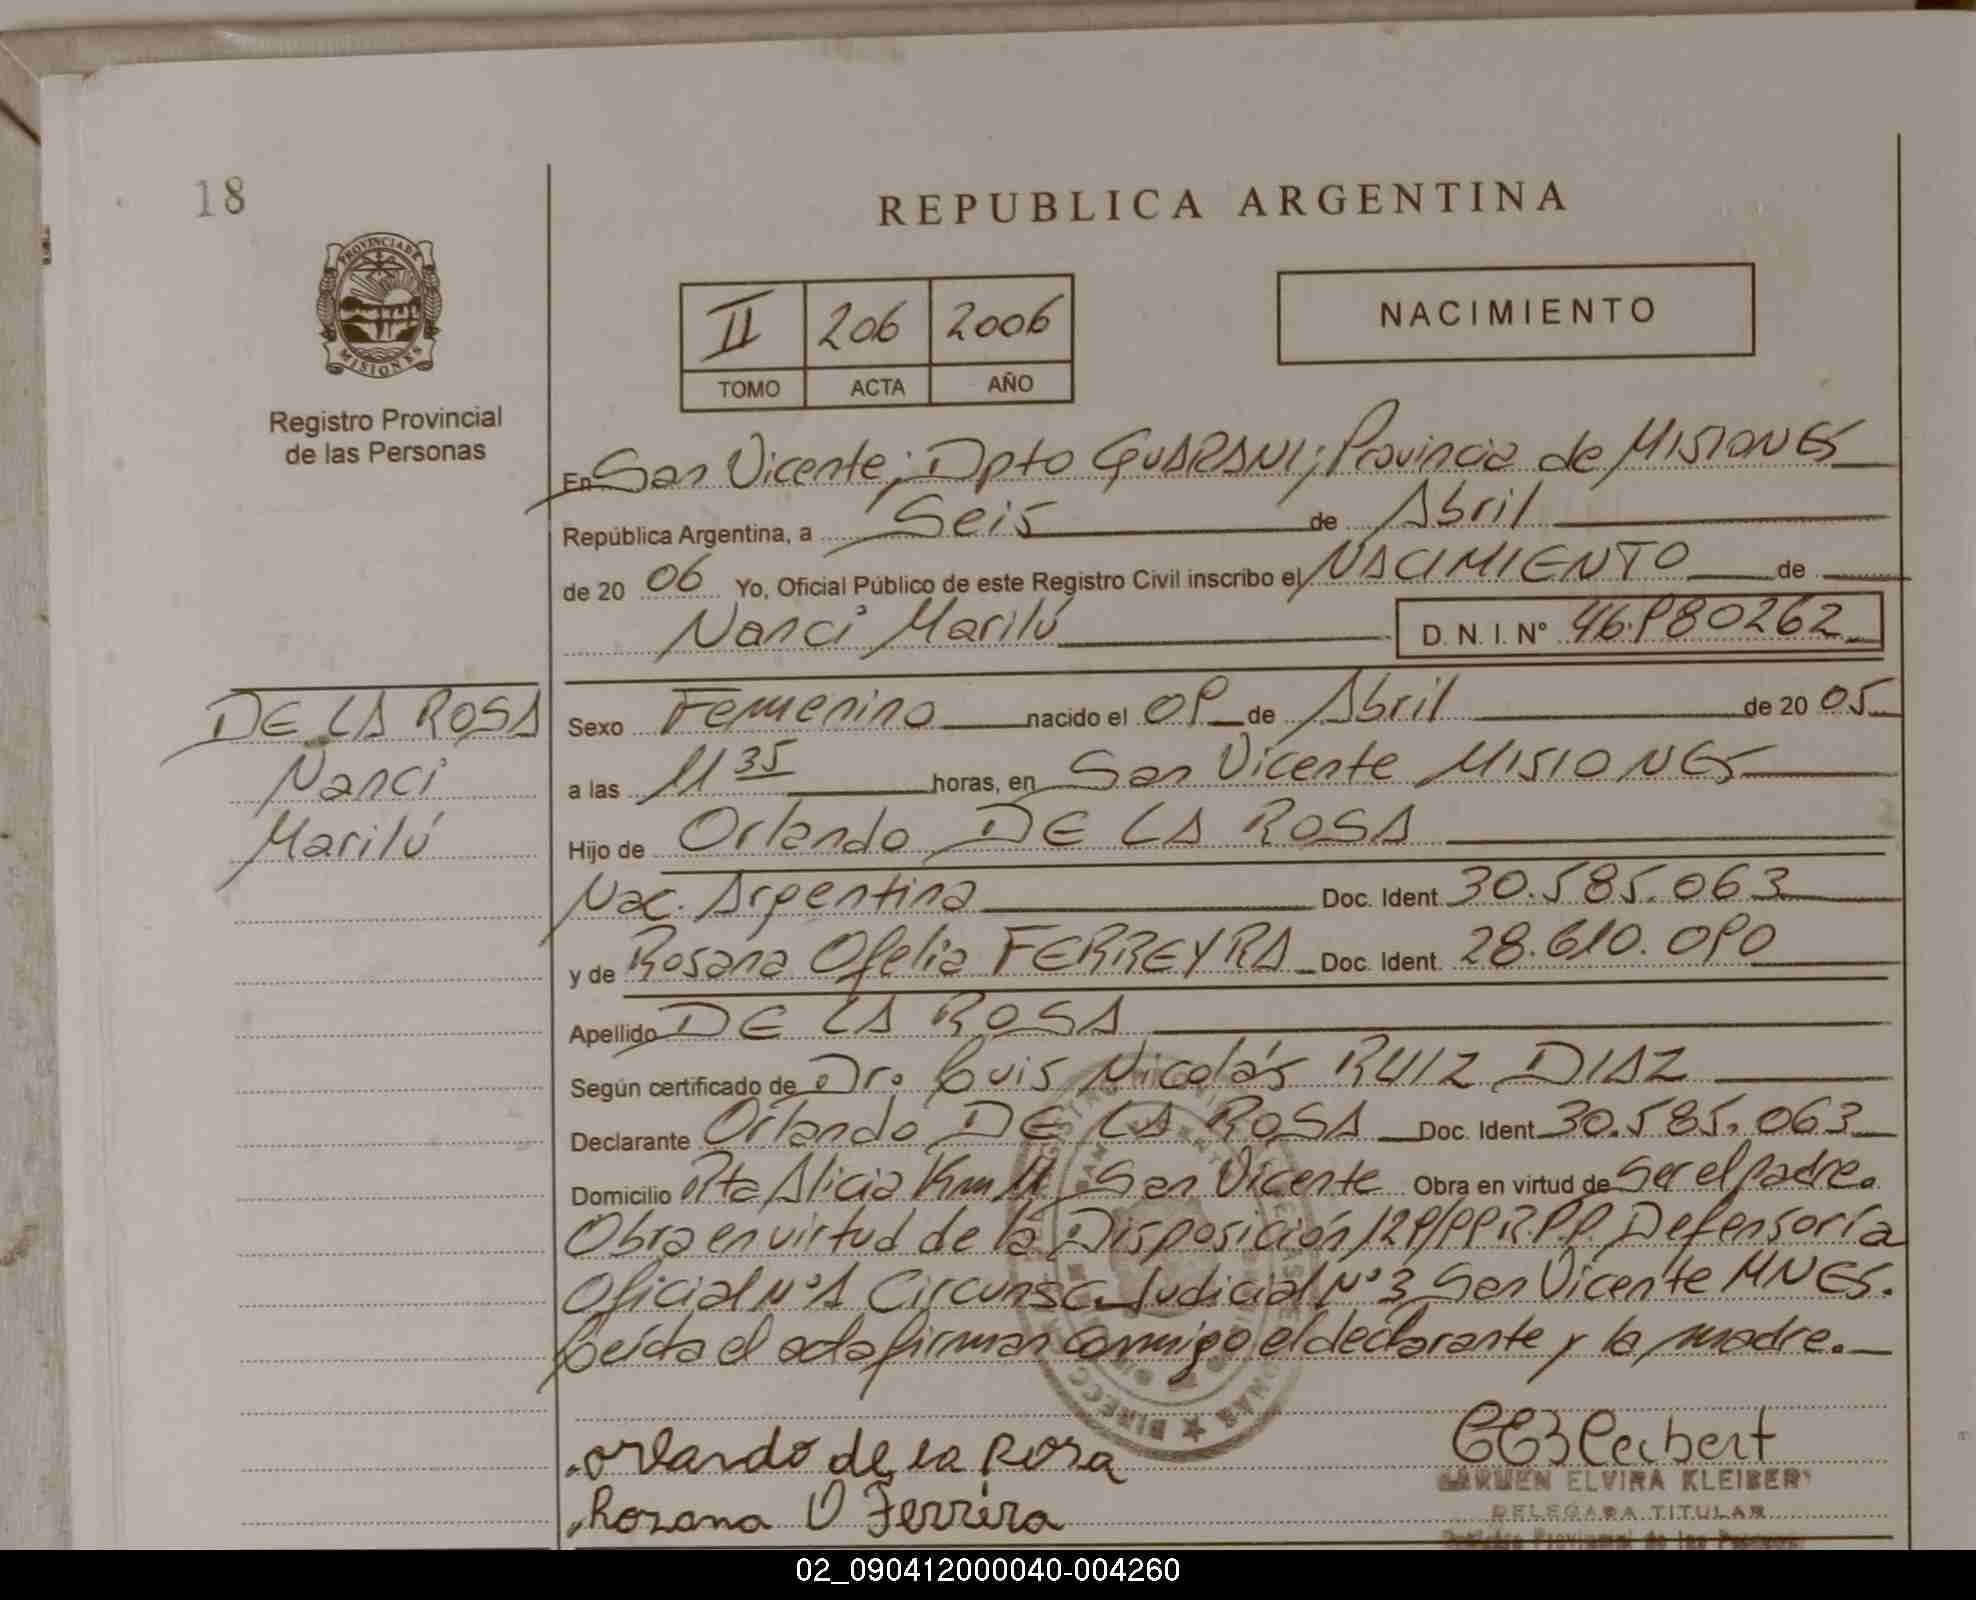 18
REPUBLICA ARGENTINA
PROVINCIA DE
MISIONES
II 206 2006
TOMO ACTA AÑO
NACIMIENTO
Registro Provincial
de las Personas
En San Vicente; Dpto GUARANI; Provincia de MISIONES
República Argentina, a Seis de Abril
de 20 06 Yo, Oficial Público de este Registro Civil inscribo el NACIMIENTO de
Nanci Marilú D. N. I. Nº 46.980262
DE LA ROSA
Nanci
Marilú
Sexo Femenino nacido el 09 de Abril de 20 05
a las 11 35 horas, en San Vicente MISIONES
Hijo de Orlando DE LA ROSA
Nac. Argentina Doc. Ident. 30.585.063
y de Rosana Ofelia FERREYRA Doc. Ident. 28.610.090
Apellido DE LA ROSA
Según certificado de Dr. Luis Nicolás RUIZ DIAZ
Declarante Orlando DE LA ROSA Doc. Ident. 30.585.063
Domicilio Pta Alicia Km 11 San Vicente Obra en virtud de Ser el padre.
Obra en virtud de la Disposición 129/99 R.P.P. Defensoría
Oficial Nº 1 Circunsc. Judicial Nº 3 San Vicente MNES.
Leída el acta firman conmigo el declarante y la madre.
orlando de la Rosa
Rozana O Ferreira
CARMEN ELVIRA KLEIBERT
DELEGADA TITULAR
Registro Provincial de las Personas
02_090412000040-004260